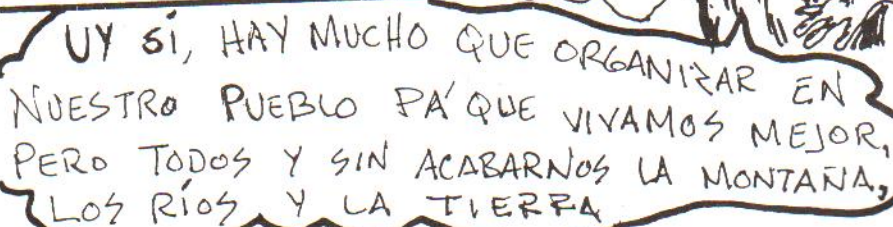 UY SÍ, HAY MUCHO QUE ORGANIZAR EN
NUESTRO PUEBLO PA' QUE VIVAMOS MEJOR,
PERO TODOS Y SIN ACABARNOS LA MONTAÑA,
LOS RÍOS Y LA TIERRA